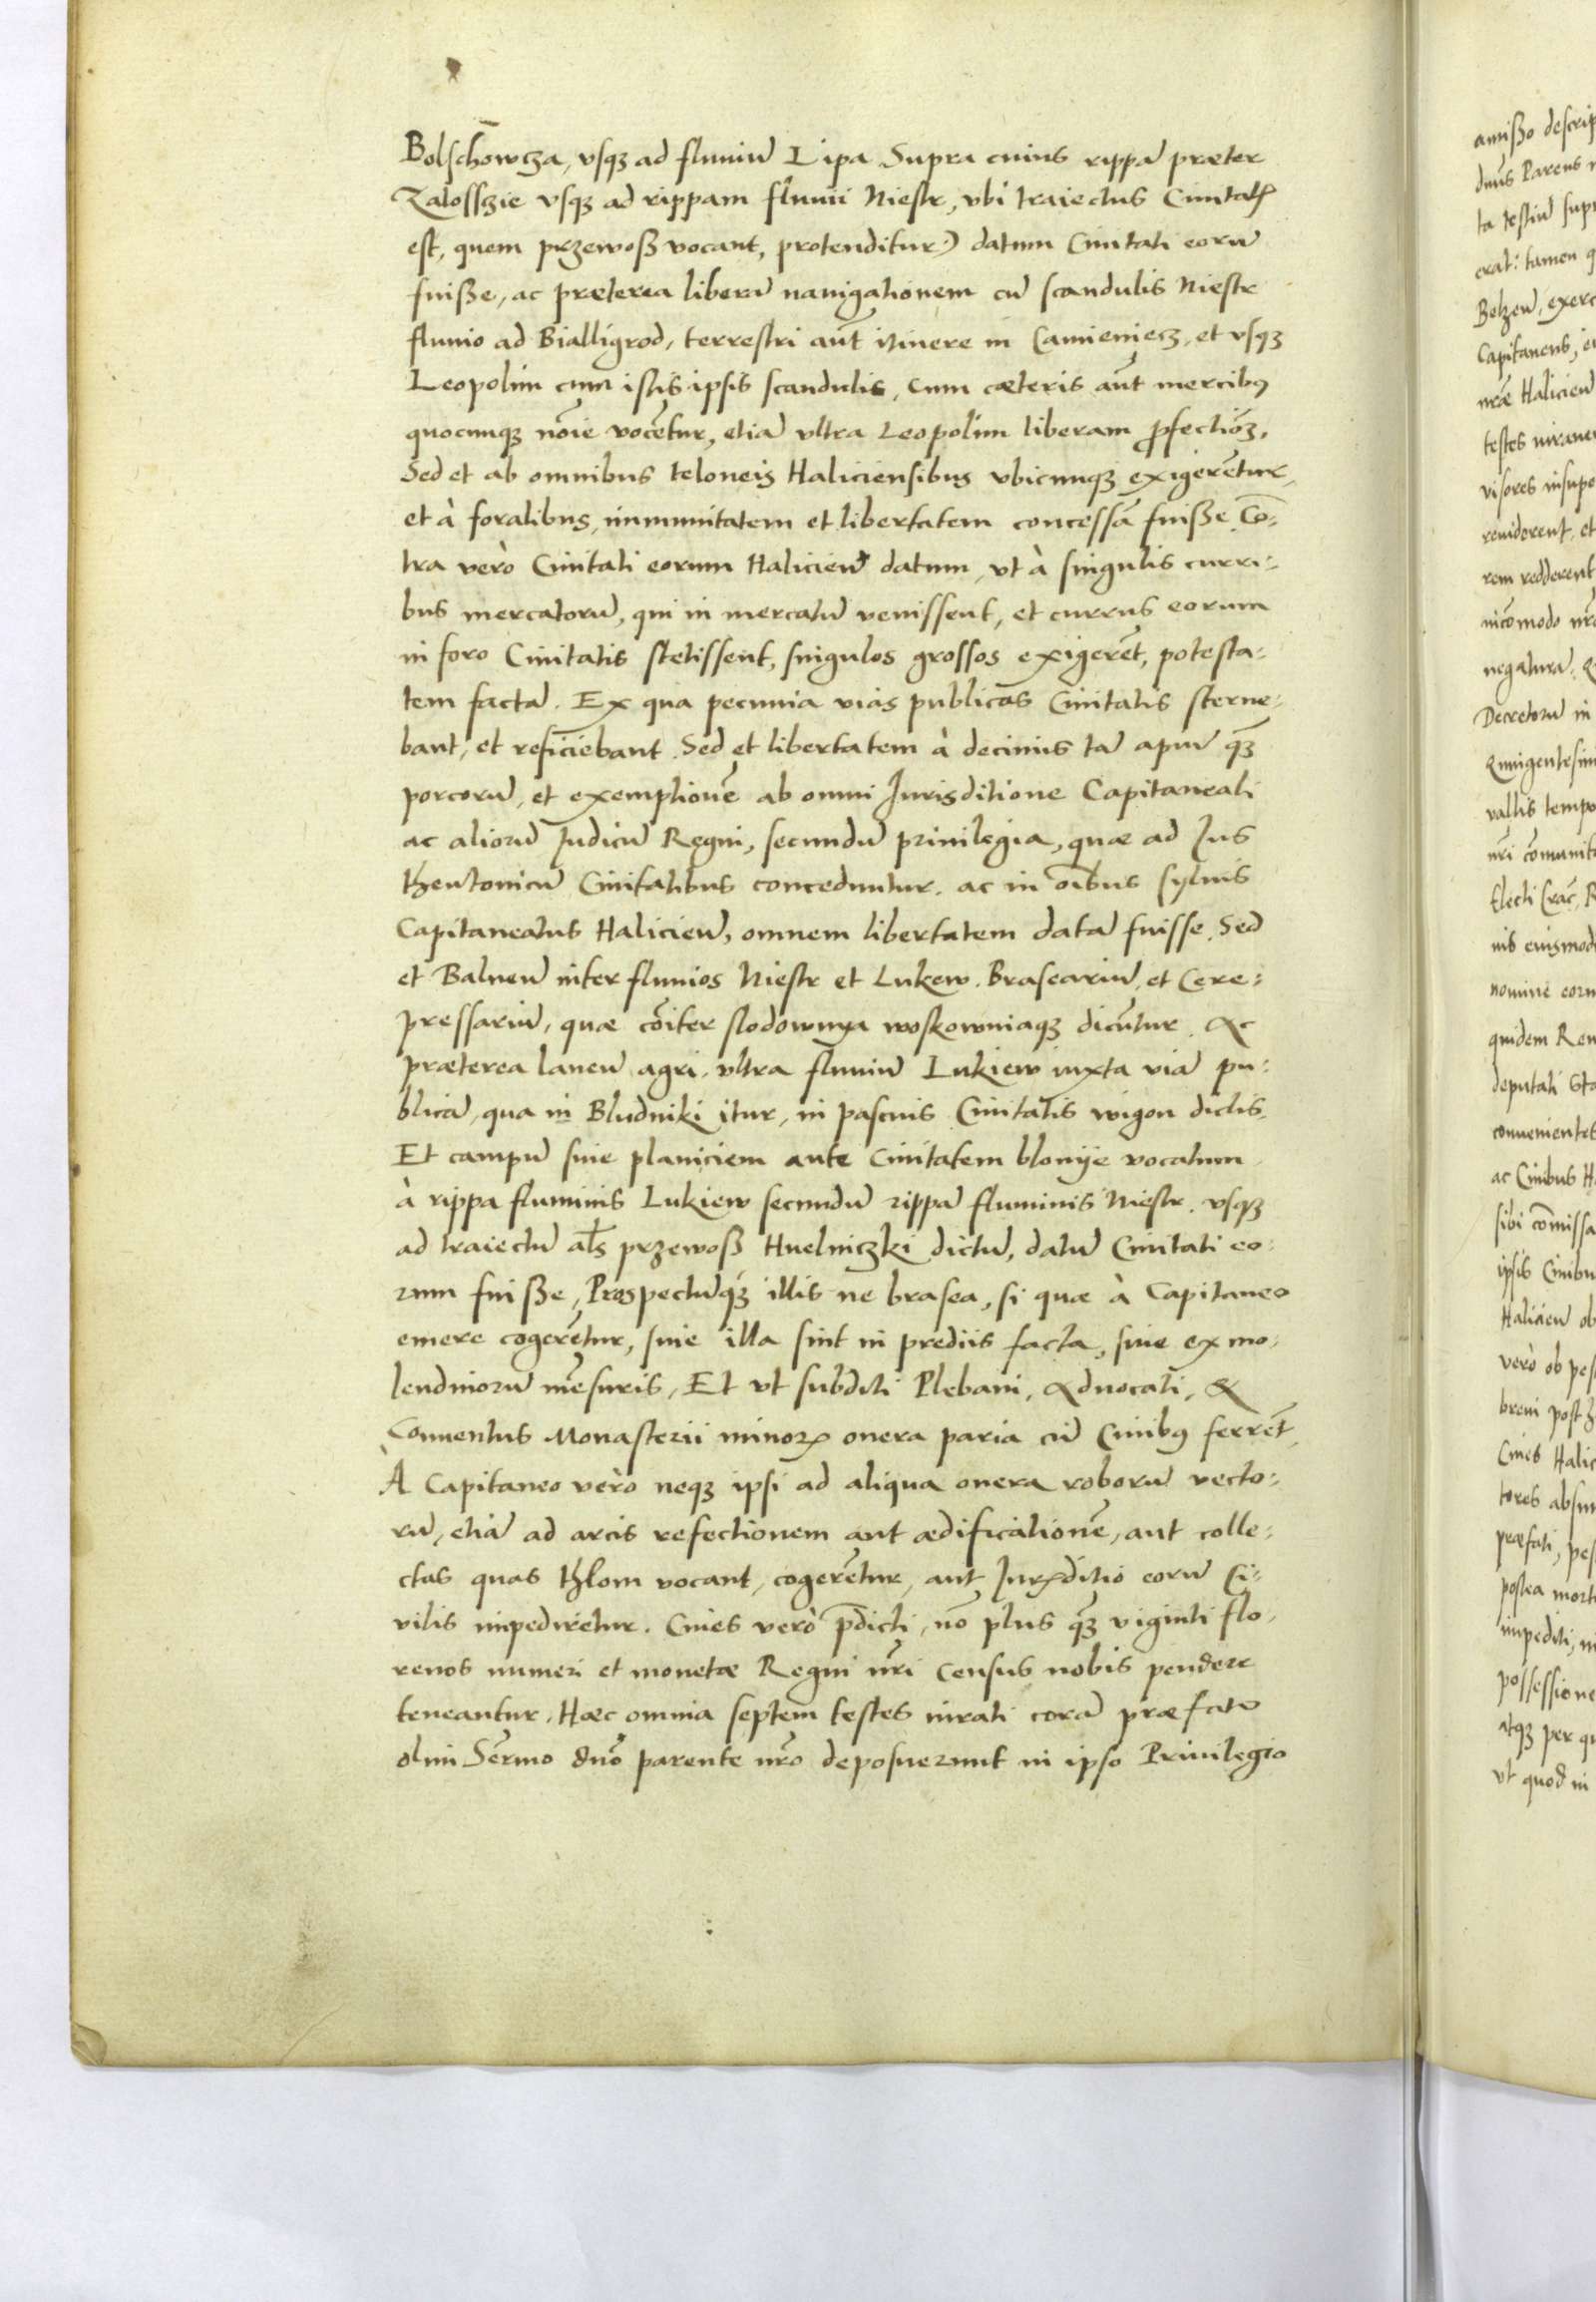 Bolschowcza, vsqꝫ ad fluuiū Lipa Supra cuius rippā præter
Zalossczie vsqꝫ ad rippam fluuii Niestr, vbi traiectus Ciuitatꝭ
est, quem przewoß vocant, protenditur) datum Ciuitati eorū
fuiße, ac præterea liberā nauigationem cū scandulis Niestr
fluuio ad Bialligrod, terrestri aūt itinere in Camieniecz, et vsqꝫ
Leopolim cum istis ipsis scandulis, Cum cæteris aūt mercibꝰ
quocunqꝫ nōie vocētur, etiā vltra Leopolim liberam ꝓfectiōꝫ,
Sed et ab omnibus teloneis Haliciensibus vbicunqꝫ exigerētur,
et à foralibus, immunitatem et libertatem concessā fuiße. Cō-
tra verò Ciuitati eorum Halicieñ datum, vt à singulis curri-
bus mercatorū, qui in mercatū venissent, et currus eorum
in foro Ciuitatis stetissent, singulos grossos exigerēt, potesta-
tem factā. Ex qua pecunia vias publicas Ciuitatis sterne-
bant, et reficiebant. Sed et libertatem à decimis tā apum qꝫ̄
porcorū, et exemptionē ab omni Iurisditione Capitaneali
ac aliorū Iudicū Regni, secundū priuilegia, quæ ad Ius
theutonicū Ciuitatibus conceduntur. ac in oībus syluis
Capitaneatus Halicieñ, omnem libertatem datā fuisse. Sed
et Balneū inter fluuios Niestr et Lukew. Braseariū, et Cere-
pressariū, quæ cōiter slodownya woskowniaqꝫ dicūtur. Ac
præterea laneū agri, vltra fluuiū Lukiew iuxta viā pu-
blicā, qua in Bludniki itur, in pascuis Ciuitatis wigon dictis.
Et campū siue planiciem ante Ciuitatem blonije vocatum
à rippa fluminis Lukiew secundū rippā fluminis Niestr. vsqꝫ
ad traiectū al̄s przewoß Huelniczki dictū, datū Ciuitati eo-
rum fuiße, Prospectūqꝫ illis ne brasea, si quæ à Capitaneo
emere cogerētur, siue illa sint in prediis facta, siue ex mo-
lendinorū mēsuris, Et vt subditi Plebani, Aduocati, &
Conuentus Monasterii minorꝝ onera paria cū Ciuibꝰ ferrēt,
À Capitaneo verò neqꝫ ipsi ad aliqua onera roborū vecto-
rū, etiā ad arcis refectionem aut ædificationē, aut colle-
ctas quas thlom vocant, cogerētur, aut Iurꝭditio eorū Ci-
vilis impediretur. Ciues verò p̄dicti, nō plus qꝫ̄ viginti flo-
renos numeri et monetæ Regni nr̄i Census nobis pendere
teneantur. Hæc omnia septem testes iurati corā præfato
olim Sermo dn̄o parente nr̄o deposuerunt in ipso Priuilegio
amißo descrip
dnūs Parens
ta testiū supr
erat: tamen q
Belzeñ, exerc
Capitaneus, e
nr̄æ Halicieñ
testes
visores insupe
reuiderent, et
rem redderent
incōmodo nr̄o
negatura.
Decretorū in
Quingentesim
vallis tempo
nr̄i cōmunit
Electi Crac̄, R
nis eiusmodi
nomine eoru
quidem Reu
deputati Sta
conuenientes
ac Ciuibus Ha
sibi cōmissa
ipsis Ciuibu
Halicieñ ob
verò ob pes
breui post
Ciues Halic
tores absum
præfati, pes
postea mort
impediti, ni
possessione
atqꝫ per qu
vt quod in